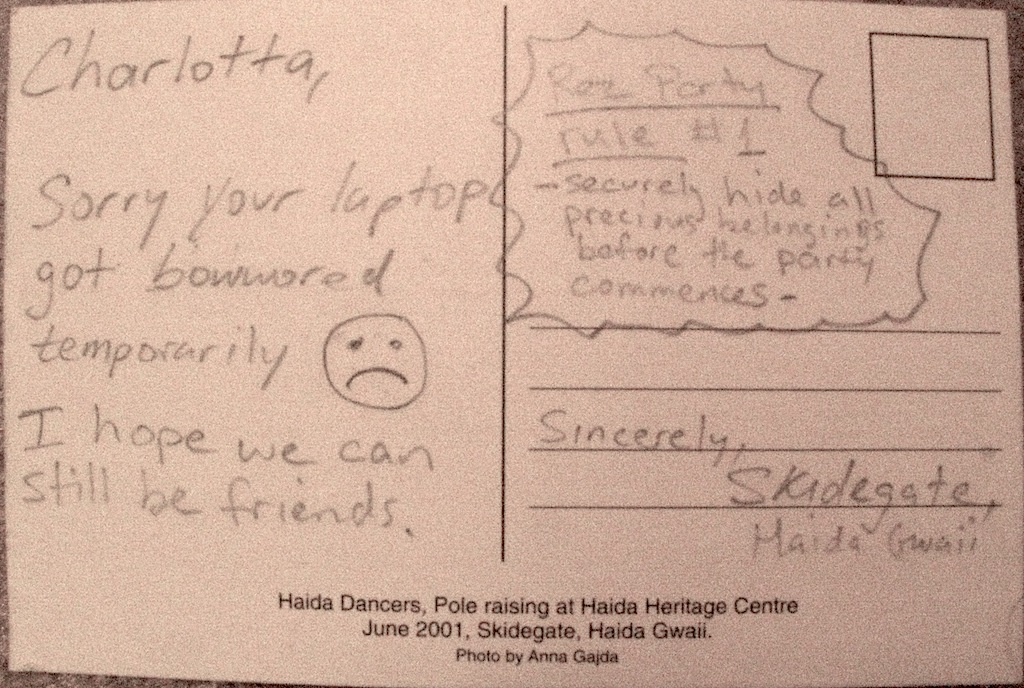 Charlotta,
Sorry your laptop
got bowwored
temporarily
I hope we can
still be friends.
Rez Party
rule #1
- securely hide all
precious belongings
before the party
commences -
Sincerely,
Skidegate,
Haida Gwaii
Haida Dancers, Pole raising at Haida Heritage Centre
June 2001, Skidegate, Haida Gwaii.
Photo by Anna Gajda